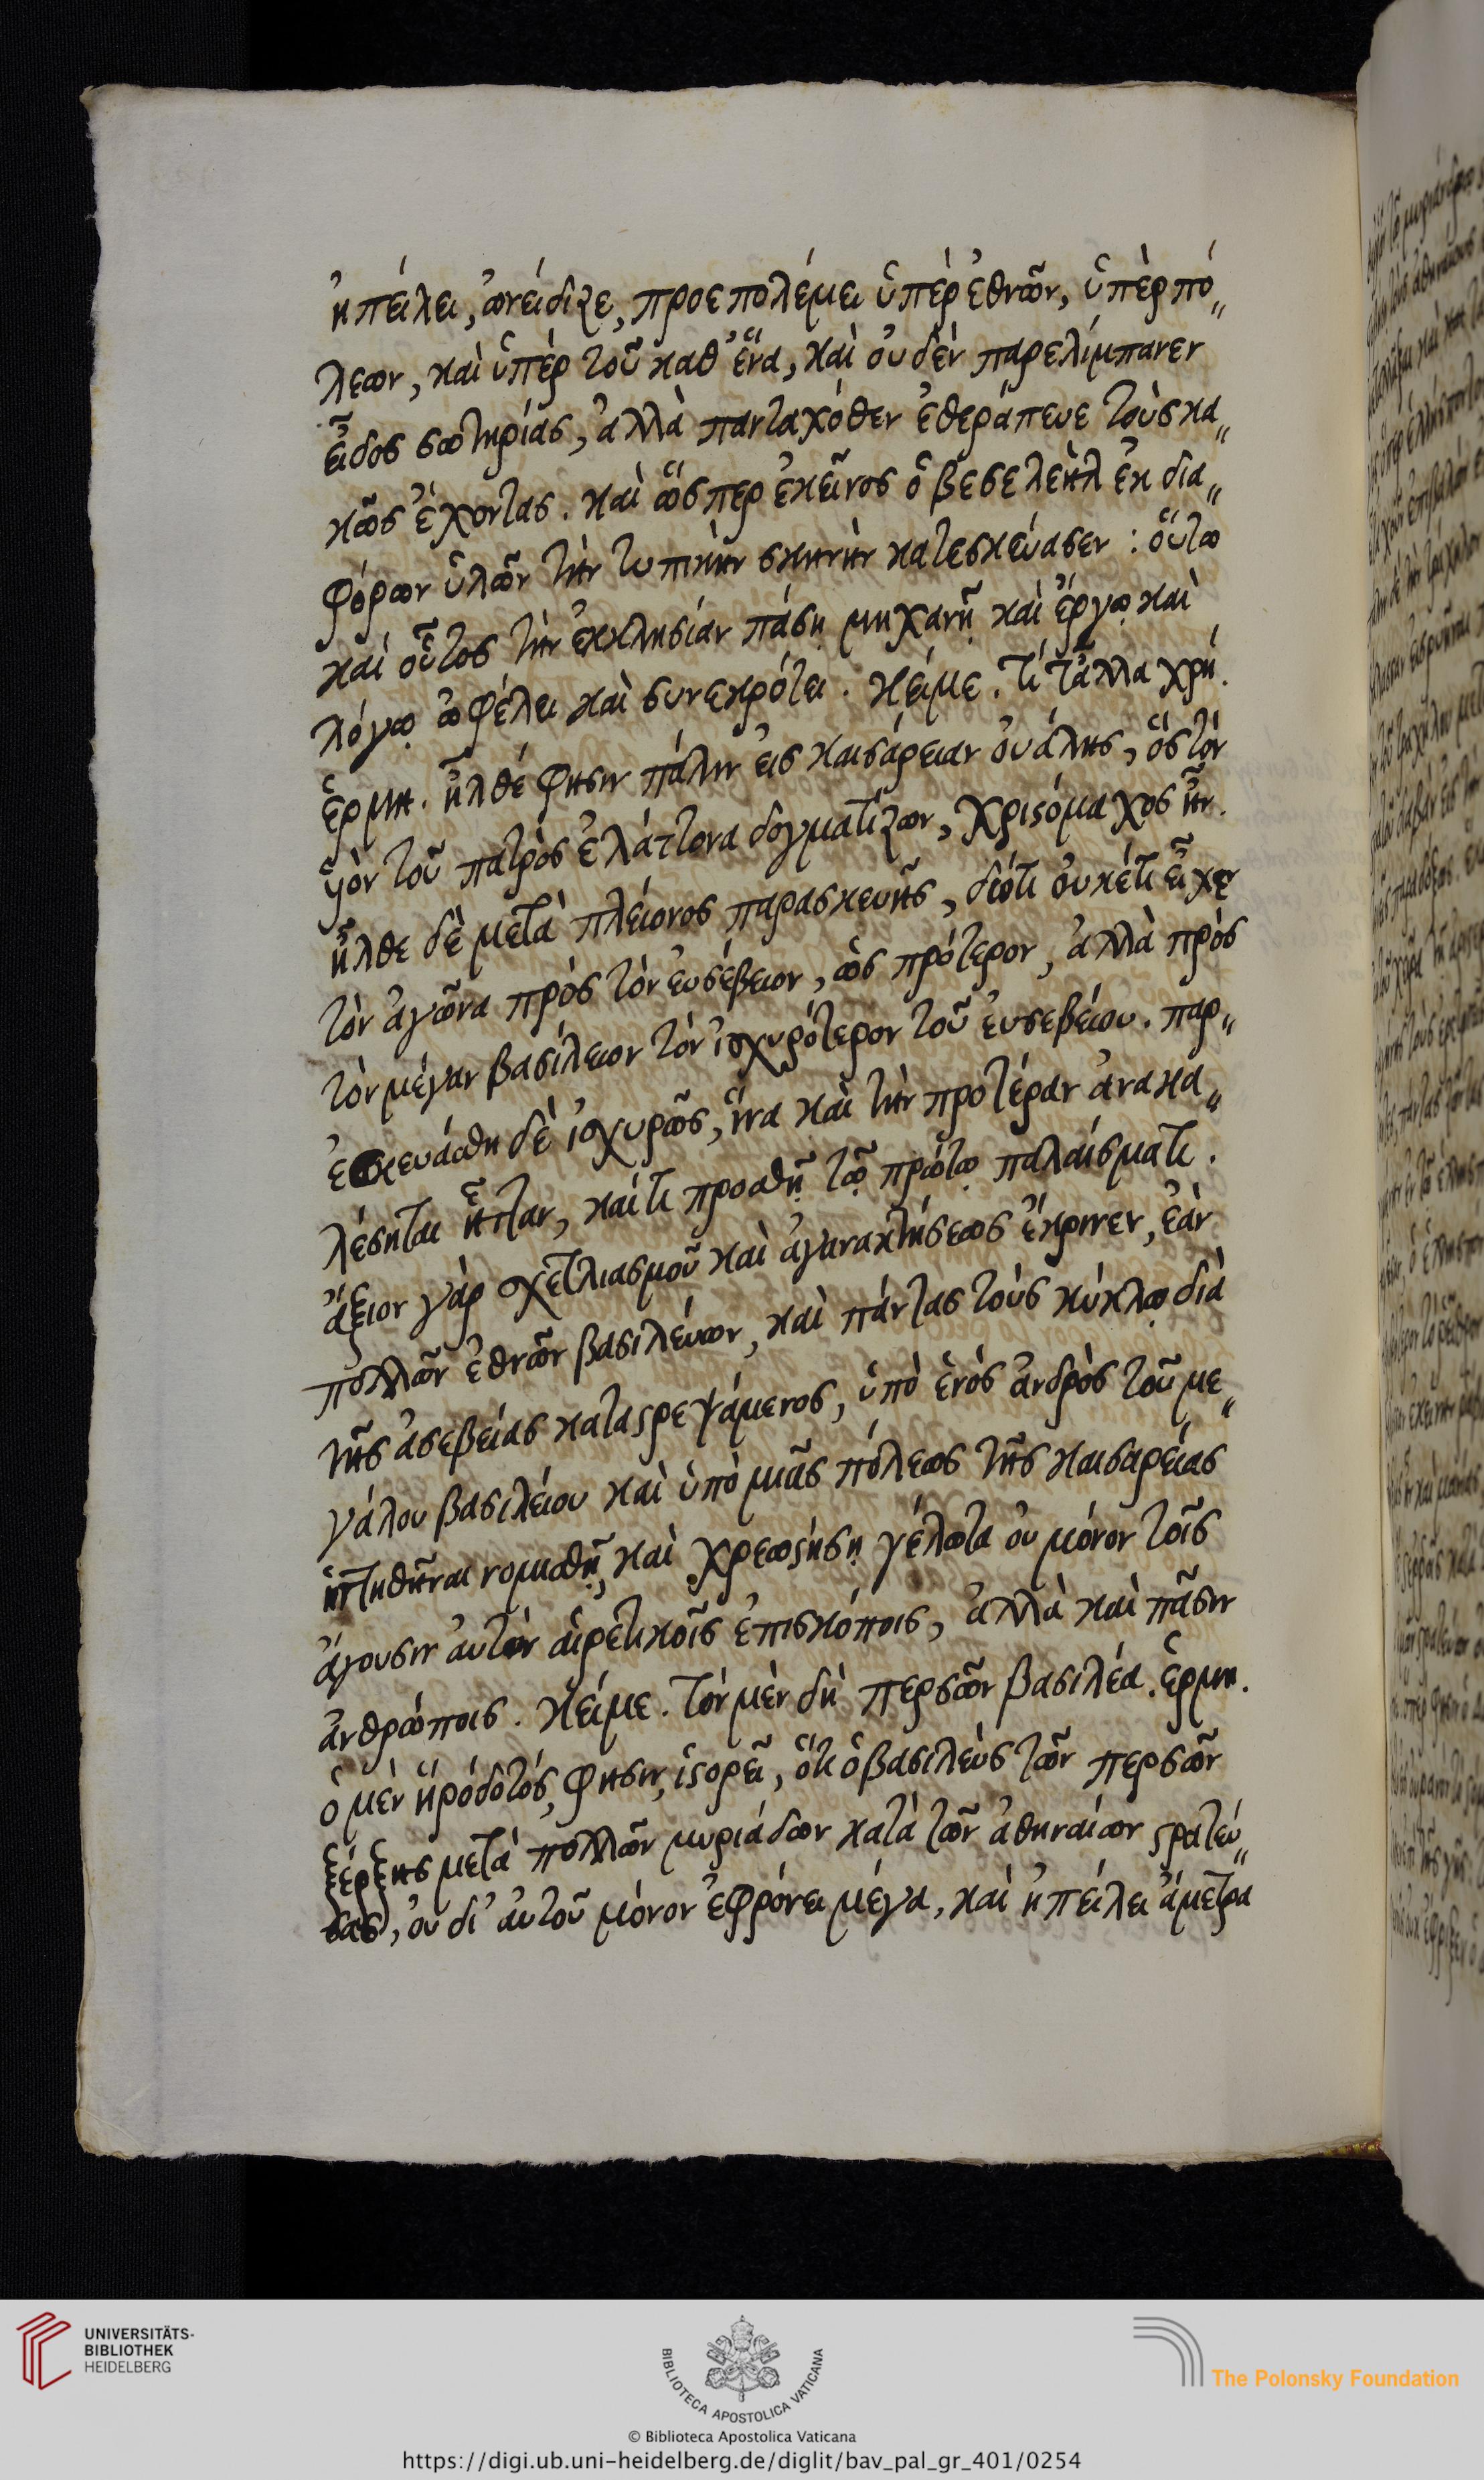 ἠπείλει, ὠνείδιζε, προεπολέμει ὑπὲρ ἐθνῶν, ὑπὲρ πό„
λεων, καὶ ὑπὲρ τοῦ καθ' ἕνα, καὶ οὐδὲν παρελίμπανεν
εἶδος σωτηρίας, ἀλλὰ πανταχόθεν ἐθεράπευε τοὺς κα„
κῶς ἔχοντας. καὶ ὥσπερ ἐκεῖνος ὁ βεσελεὴλ ἐκ δια„
φόρων ὑλῶν τὴν τυπικὴν σκηνὴν κατεσκεύασεν : οὕτω
καὶ οὗτος τὴν ἐκκλησίαν πάσῃ μηχανῇ καὶ ἔργῳ καὶ
λόγῳ ὠφέλει καὶ συνεκρότει. Κείμε. Τί τἄλλα χρή.
ἑρμη. ἦλθέ φησιν πάλιν εἰς καισάρειαν οὐάλης, ὃς τὸν
υἱὸν τοῦ πατρὸς ἐλάττονα δογματίζων, χριϛόμαχος ἦν.
ἦλθε δὲ μετὰ πλείονος παρασκευῆς, διότι οὐκέτι εἶχεν
τὸν ἀγῶνα πρὸς τὸν εὐσέβειον, ὡς πρότερον, ἀλλὰ πρὸς
τὸν μέγαν βασίλειον τὸν ἰσχυρότερον τοῦ εὐσεβείου. παρ„
εσκευάσθη δὲ ἰσχυρῶς, ἵνα καὶ τὴν προτέραν ἀνακα„
λέσηται ἧτταν, καί τι προσθῇ τῷ πρώτῳ παλαίσματι.
ἄξιον γὰρ σχετλιασμοῦ καὶ ἀγανακτήσεως ἔκρινεν, ἐὰν
πολλῶν ἐθνῶν βασιλεύων, καὶ πάντας τοὺς κύκλῳ διὰ
τῆς ἀσεβείας καταϛρεψάμενος, ὑπὸ ἑνὸς ἀνδρὸς τοῦ με„
γάλου βασιλείου καὶ ὑπὸ μιᾶς πόλεως τῆς καισαρείας
ἡττηθῆναι νομισθῇ, καὶ χρεωϛήσῃ γέλωτα οὐ μόνον τοῖς
ἄγουσιν αὐτὸν αἱρετικοῖς ἐπισκόποις, ἀλλὰ καὶ πᾶσιν
ἀνθρώποις. Κείμε. Τὸν μὲν δὴ περσῶν βασιλέα. ἑρμη.
ὁ μὲν ἡρόδοτός, φησιν, ἱϛορεῖ, ὅτι ὁ βασιλεὺς τῶν περσῶν
ξέρξης μετὰ πολλῶν μυριάδων κατὰ τῶν ἀθηναίων ϛρατεύ„
σας, οὐ δι' αὐτοῦ μόνον ἐφρόνει μέγα, καὶ ἠπείλει ἄμετρα
UNIVERSITÄTS-
BIBLIOTHEK
HEIDELBERG
BIBLIOTECA APOSTOLICA VATICANA
The Polonsky Foundation
© Biblioteca Apostolica Vaticana
https://digi.ub.uni-heidelberg.de/diglit/bav_pal_gr_401/0254